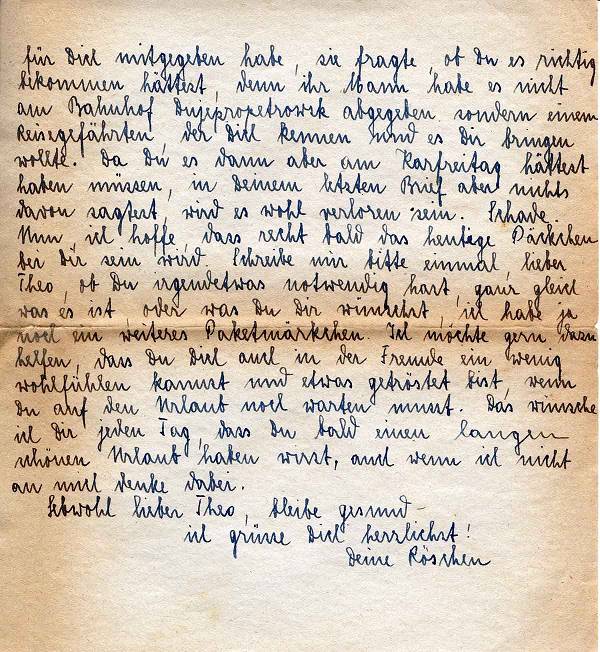 für Dich mitgegeben habe, sie fragte, ob Du es richtig
bekommen hättest, denn ihr Mann habe es nicht
am Bahnhof Dnjepropetrowsk abgegeben sondern einem
Reisegefährten, der Dich kennen und es Dir bringen
wollte. Da Du es dann aber am Karfreitag hättest
haben müssen, in Deinem letzten Brief aber nichts
davon sagtest, wird es wohl verloren sein. Schade.
Nun, ich hoffe, dass recht bald das heutige Päckchen
bei Dir sein wird. Schreibe mir bitte einmal, lieber
Theo, ob Du irgendetwas notwendig hast, ganz gleich
was es ist, oder was Du Dir wünschst, ich habe ja
noch ein weiteres Paketmärkchen. Ich möchte gern dazu
helfen, dass Du Dich auch in der Fremde ein wenig
wohlfühlen kannst und etwas getröstet bist, wenn
Du auf den Urlaub noch warten musst. Das wünsche
ich Dir jeden Tag, dass Du bald einen langen
schönen Urlaub haben wirst, auch wenn ich nicht
an mich denke dabei.
Lebwohl lieber Theo, bleibe gesund -
ich grüsse Dich herzlichst!
Deine Röschen